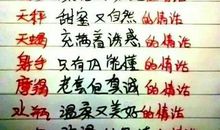 天秤 甜蜜又自然的情话
天蝎 充满着诱惑的情话
射手 只有你能懂的情话
摩羯 老套但虔诚的情话
水瓶 温柔又美好的情话